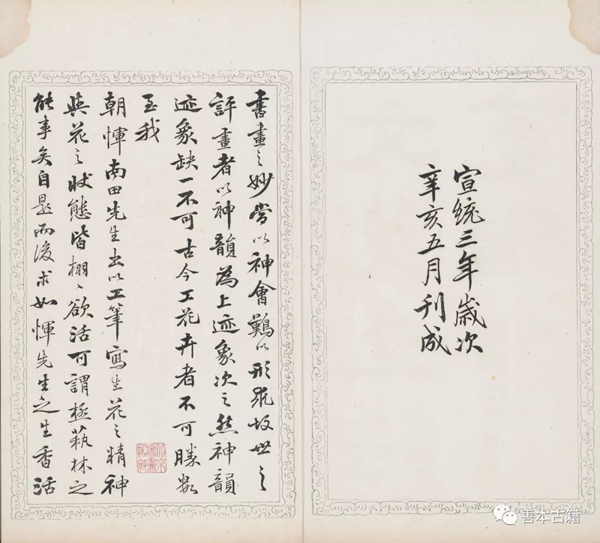 宣統三年歲次
辛亥五月刊成
書畫之妙當以神會難以形故世之
評畫者以神韻為上迹象次之然神韻
迹象缺一不可古今工花卉者不可勝數
至我
朝惲南田先生出以工筆寫生花之精神
與花之狀態皆栩〻欲活可謂極藝林之
能事矣自是而後求如惲先生之生香活
善本古籍